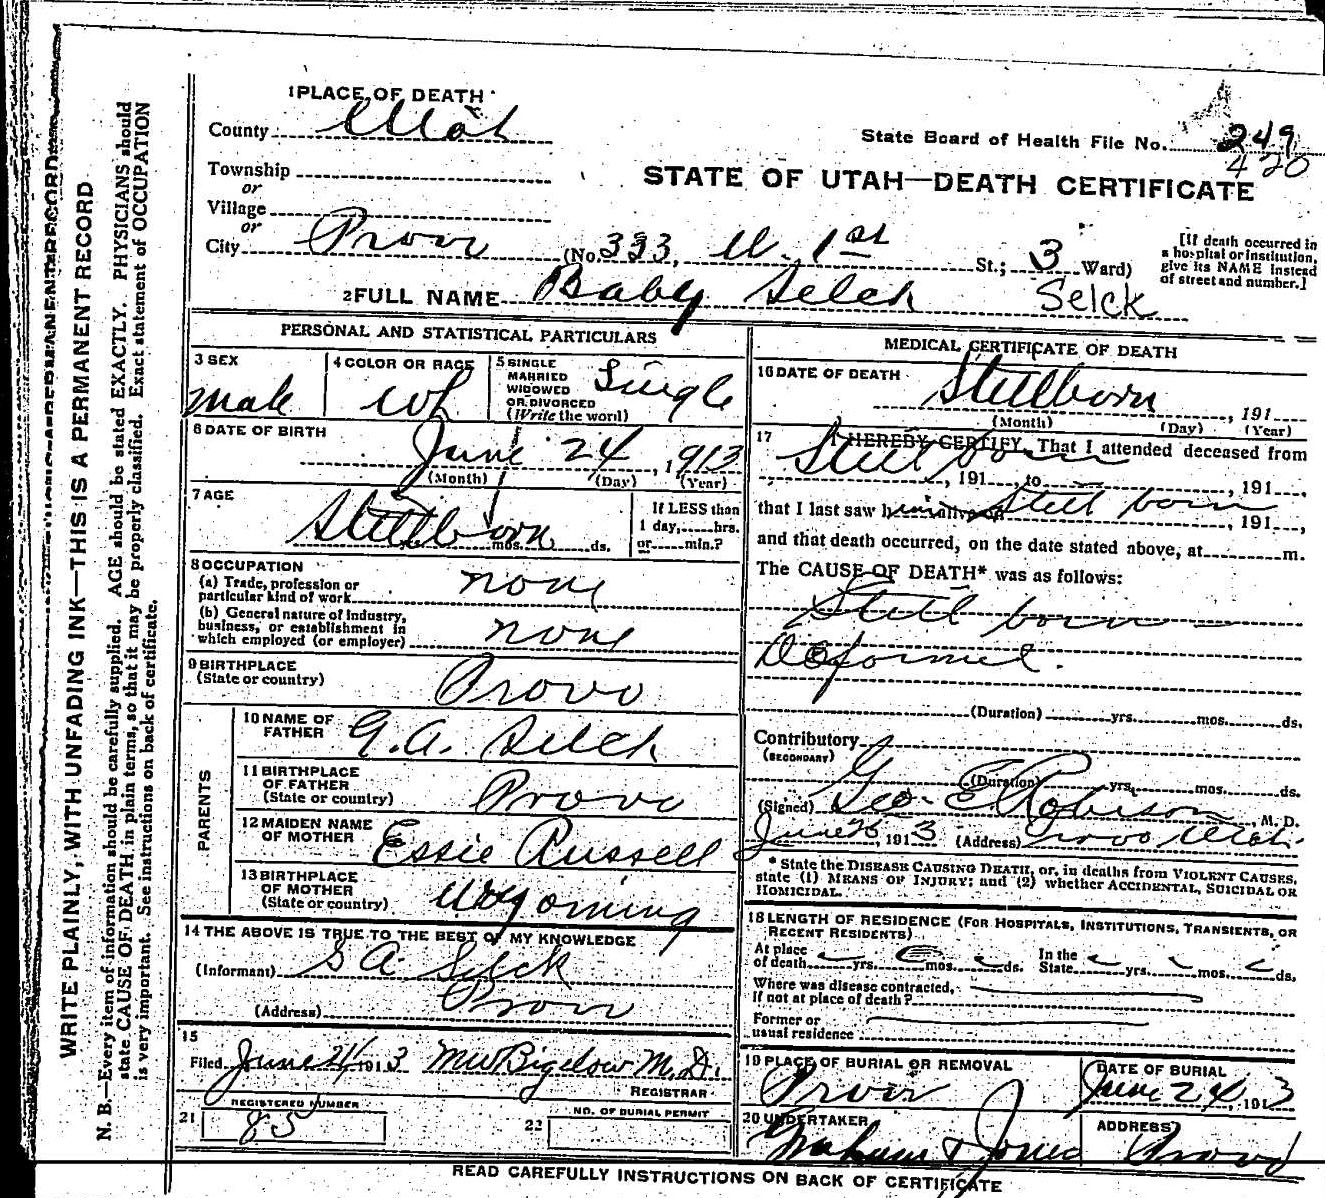 1 PLACE OF DEATH
County Utah
State Board of Health File No. 249
420
Township
or
Village
or
City Provo (No. 333, W. 1st St.; 3 Ward)
STATE OF UTAH—DEATH CERTIFICATE
[If death occurred in
a hospital or institution,
give its NAME instead
of street and number.]
2 FULL NAME Baby Selck Selck
PERSONAL AND STATISTICAL PARTICULARS
3 SEX
male
4 COLOR OR RACE
wh
5 SINGLE
MARRIED
WIDOWED
OR DIVORCED
(Write the word)
Single
6 DATE OF BIRTH
June 24, 1913
(Month) (Day) (Year)
7 AGE
Stillborn
mos. ds.
If LESS than
1 day, hrs.
or min.?
8 OCCUPATION
(a) Trade, profession or
particular kind of work none
(b) General nature of industry,
business, or establishment in
which employed (or employer) none
9 BIRTHPLACE
(State or country) Provo
PARENTS
10 NAME OF
FATHER G.A. Selck
11 BIRTHPLACE
OF FATHER
(State or country) Provo
12 MAIDEN NAME
OF MOTHER Essie Russell
13 BIRTHPLACE
OF MOTHER
(State or country) Wyoming
14 THE ABOVE IS TRUE TO THE BEST OF MY KNOWLEDGE
(Informant) G A Selck
(Address) Provo
15
Filed June 24 1913 MW Bigelow M.D.
REGISTRAR
21 REGISTERED NUMBER
85
22 NO. OF BURIAL PERMIT
MEDICAL CERTIFICATE OF DEATH
16 DATE OF DEATH Stillborn, 191
(Month) (Day) (Year)
17 I HEREBY CERTIFY, That I attended deceased from
Still born, 191, to, 191,
that I last saw him alive on Still born, 191,
and that death occurred, on the date stated above, at m.
The CAUSE OF DEATH* was as follows:
Still born
Deformed.
(Duration) yrs. mos. ds.
Contributory
(SECONDARY)
(Duration) yrs. mos. ds.
(Signed) Geo. E Robison, M. D.
June 25, 1913 (Address) Provo Utah
* State the DISEASE CAUSING DEATH, or, in deaths from VIOLENT CAUSES,
state (1) MEANS OF INJURY; and (2) whether ACCIDENTAL, SUICIDAL OR
HOMICIDAL.
18 LENGTH OF RESIDENCE (FOR HOSPITALS, INSTITUTIONS, TRANSIENTS, OR
RECENT RESIDENTS)
At place
of death yrs. mos. ds. In the
State yrs. mos. ds.
Where was disease contracted,
if not at place of death?
Former or
usual residence
19 PLACE OF BURIAL OR REMOVAL
Provo
DATE OF BURIAL
June 24, 1913
20 UNDERTAKER
Graham & Jones
ADDRESS
Provo
READ CAREFULLY INSTRUCTIONS ON BACK OF CERTIFICATE
WRITE PLAINLY, WITH UNFADING INK—THIS IS A PERMANENT RECORD
N. B.—Every item of information should be carefully supplied. AGE should be stated EXACTLY. PHYSICIANS should
state CAUSE OF DEATH in plain terms, so that it may be properly classified. Exact statement of OCCUPATION
is very important. See instructions on back of certificate.